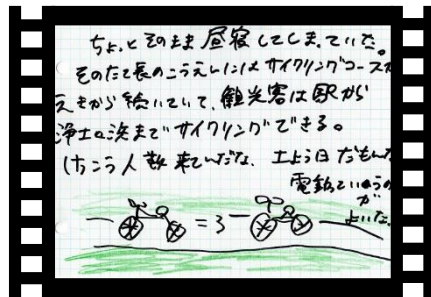 ちょっとそのまま昼寝してしまっていた。
そのたて長のこうえんにはサイクリングコースが
えきから続いていて、観光客は駅から
浄土ヶ浜までサイクリングできる。
けっこう人も来てんだな、土よう日だもんな
電動というのが
よいな。